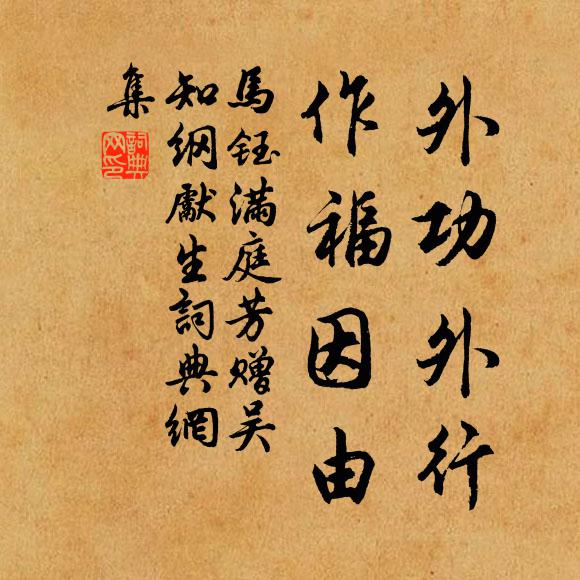 外功外行
作福因由
馬鈺滿庭芳赠吴
知綱獻生詞典網
集
詞典網印